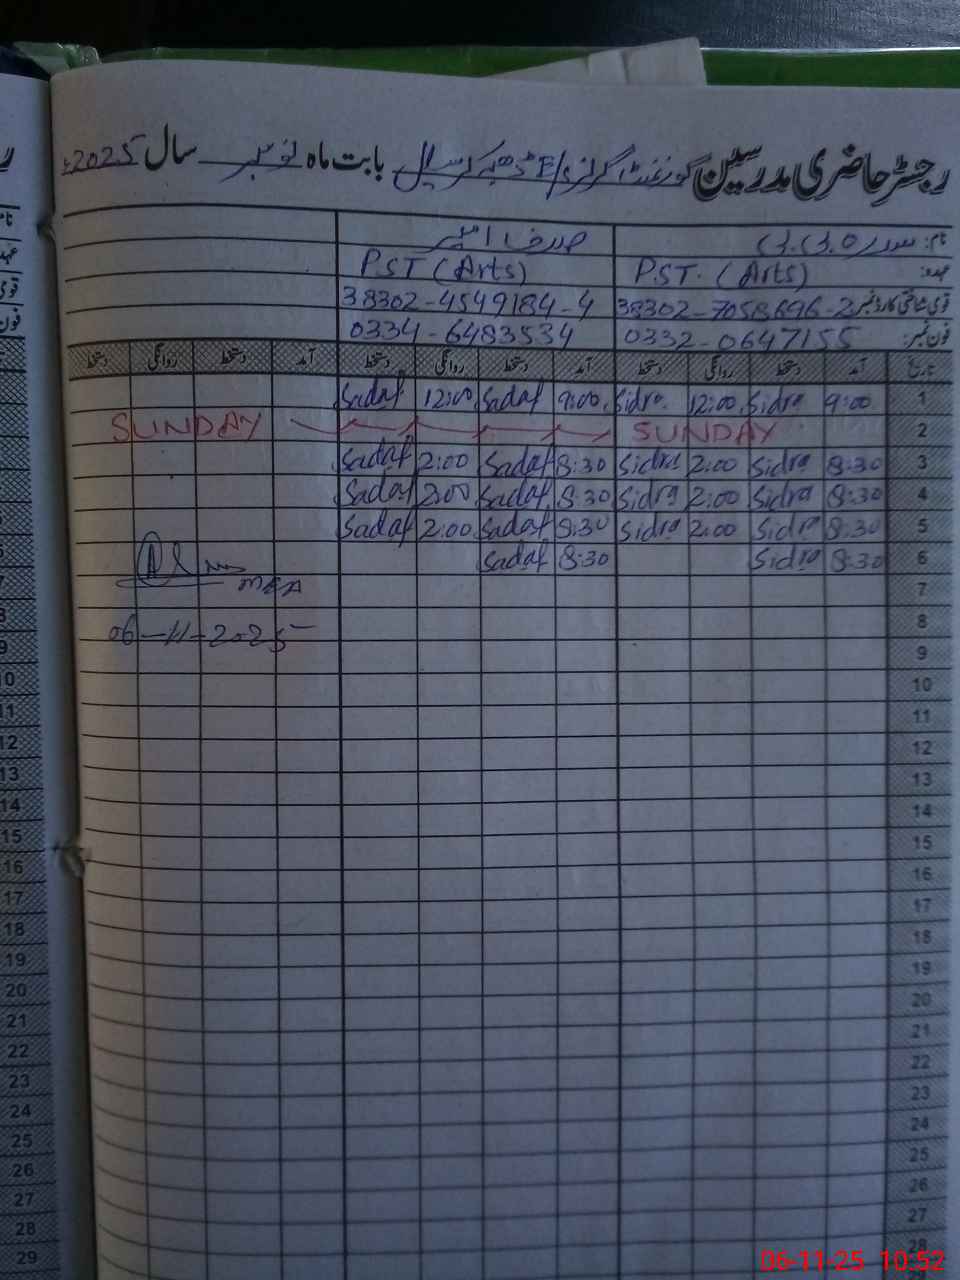 رجسٹر حاضری مدرسین گورنمنٹ گرلز E/S بابت ماہ نومبر سال 2025ء
نام: صدف امیر
عہدہ: P.S.T. (Arts) P.S.T (Arts)
قومی شناختی کارڈ نمبر 38302-7058696-2 38302-4549184-4
فون نمبر: 0332-0647155 0334-6483534
تاریخ آمد دستخط روانگی دستخط آمد دستخط روانگی دستخط آمد دستخط روانگی دستخط
1 9:00 Sidra 12:00 Sidra 9:00 Sadaf 12:00 Sadaf
2 SUNDAY SUNDAY
3 8:30 Sidra 2:00 Sidra 8:30 Sadaf 2:00 Sadaf
4 8:30 Sidra 2:00 Sidra 8:30 Sadaf 2:00 Sadaf
5 8:30 Sidra 2:00 Sidra 8:30 Sadaf 2:00 Sadaf
6 8:30 Sidra 8:30 Sadaf
MEA
7
8
06-11-2025
9
10
11
12
13
14
15
16
17
18
19
20
21
22
23
24
25
26
27
28
10
11
12
13
14
15
16
17
18
19
20
21
22
23
24
25
26
27
28
29
06-11-25 10:52